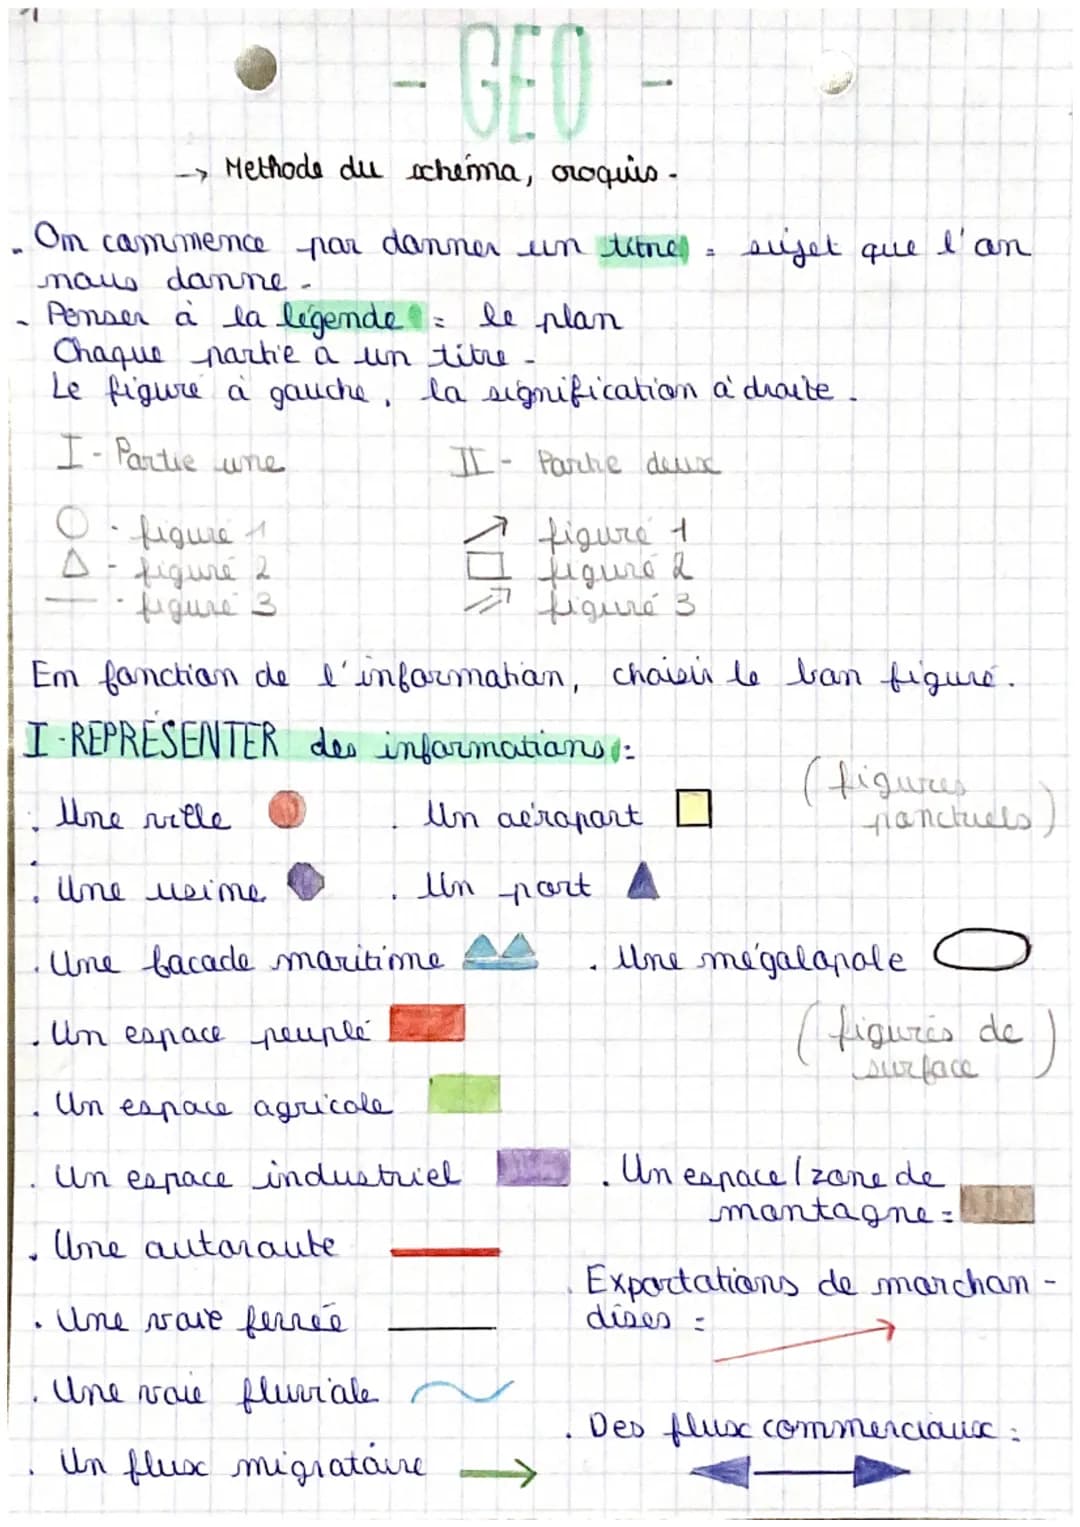 - GEO -
→ Methode du schéma, croquis -
- On commence par donner un titre = sujet que l'on
nous donne -
- Penser à la légende = le plan
Chaque partie a un titre -
Le figuré à gauche, la signification à droite.
I - Partie une
II - Partie deux
- figuré 1
figuré 1
- figuré 2
figuré 2
- figuré 3
figuré 3
En fonction de l'information, choisir le bon figuré.
I - REPRÉSENTER des informations :
(figures
. Une ville
. Un aéroport
ponctuels)
. Une usine
. Un port
. Une facade maritime
. Une mégalopole
. Un espace peuplé
(figurés de
surface)
. Un espace agricole
. Un espace industriel
. Un espace / zone de
montagne =
. Une autoroute
. Exportations de marchan -
. Une voie ferrée
dises =
. Une voie fluviale
. Des flux commerciaux :
. Un flux migratoire